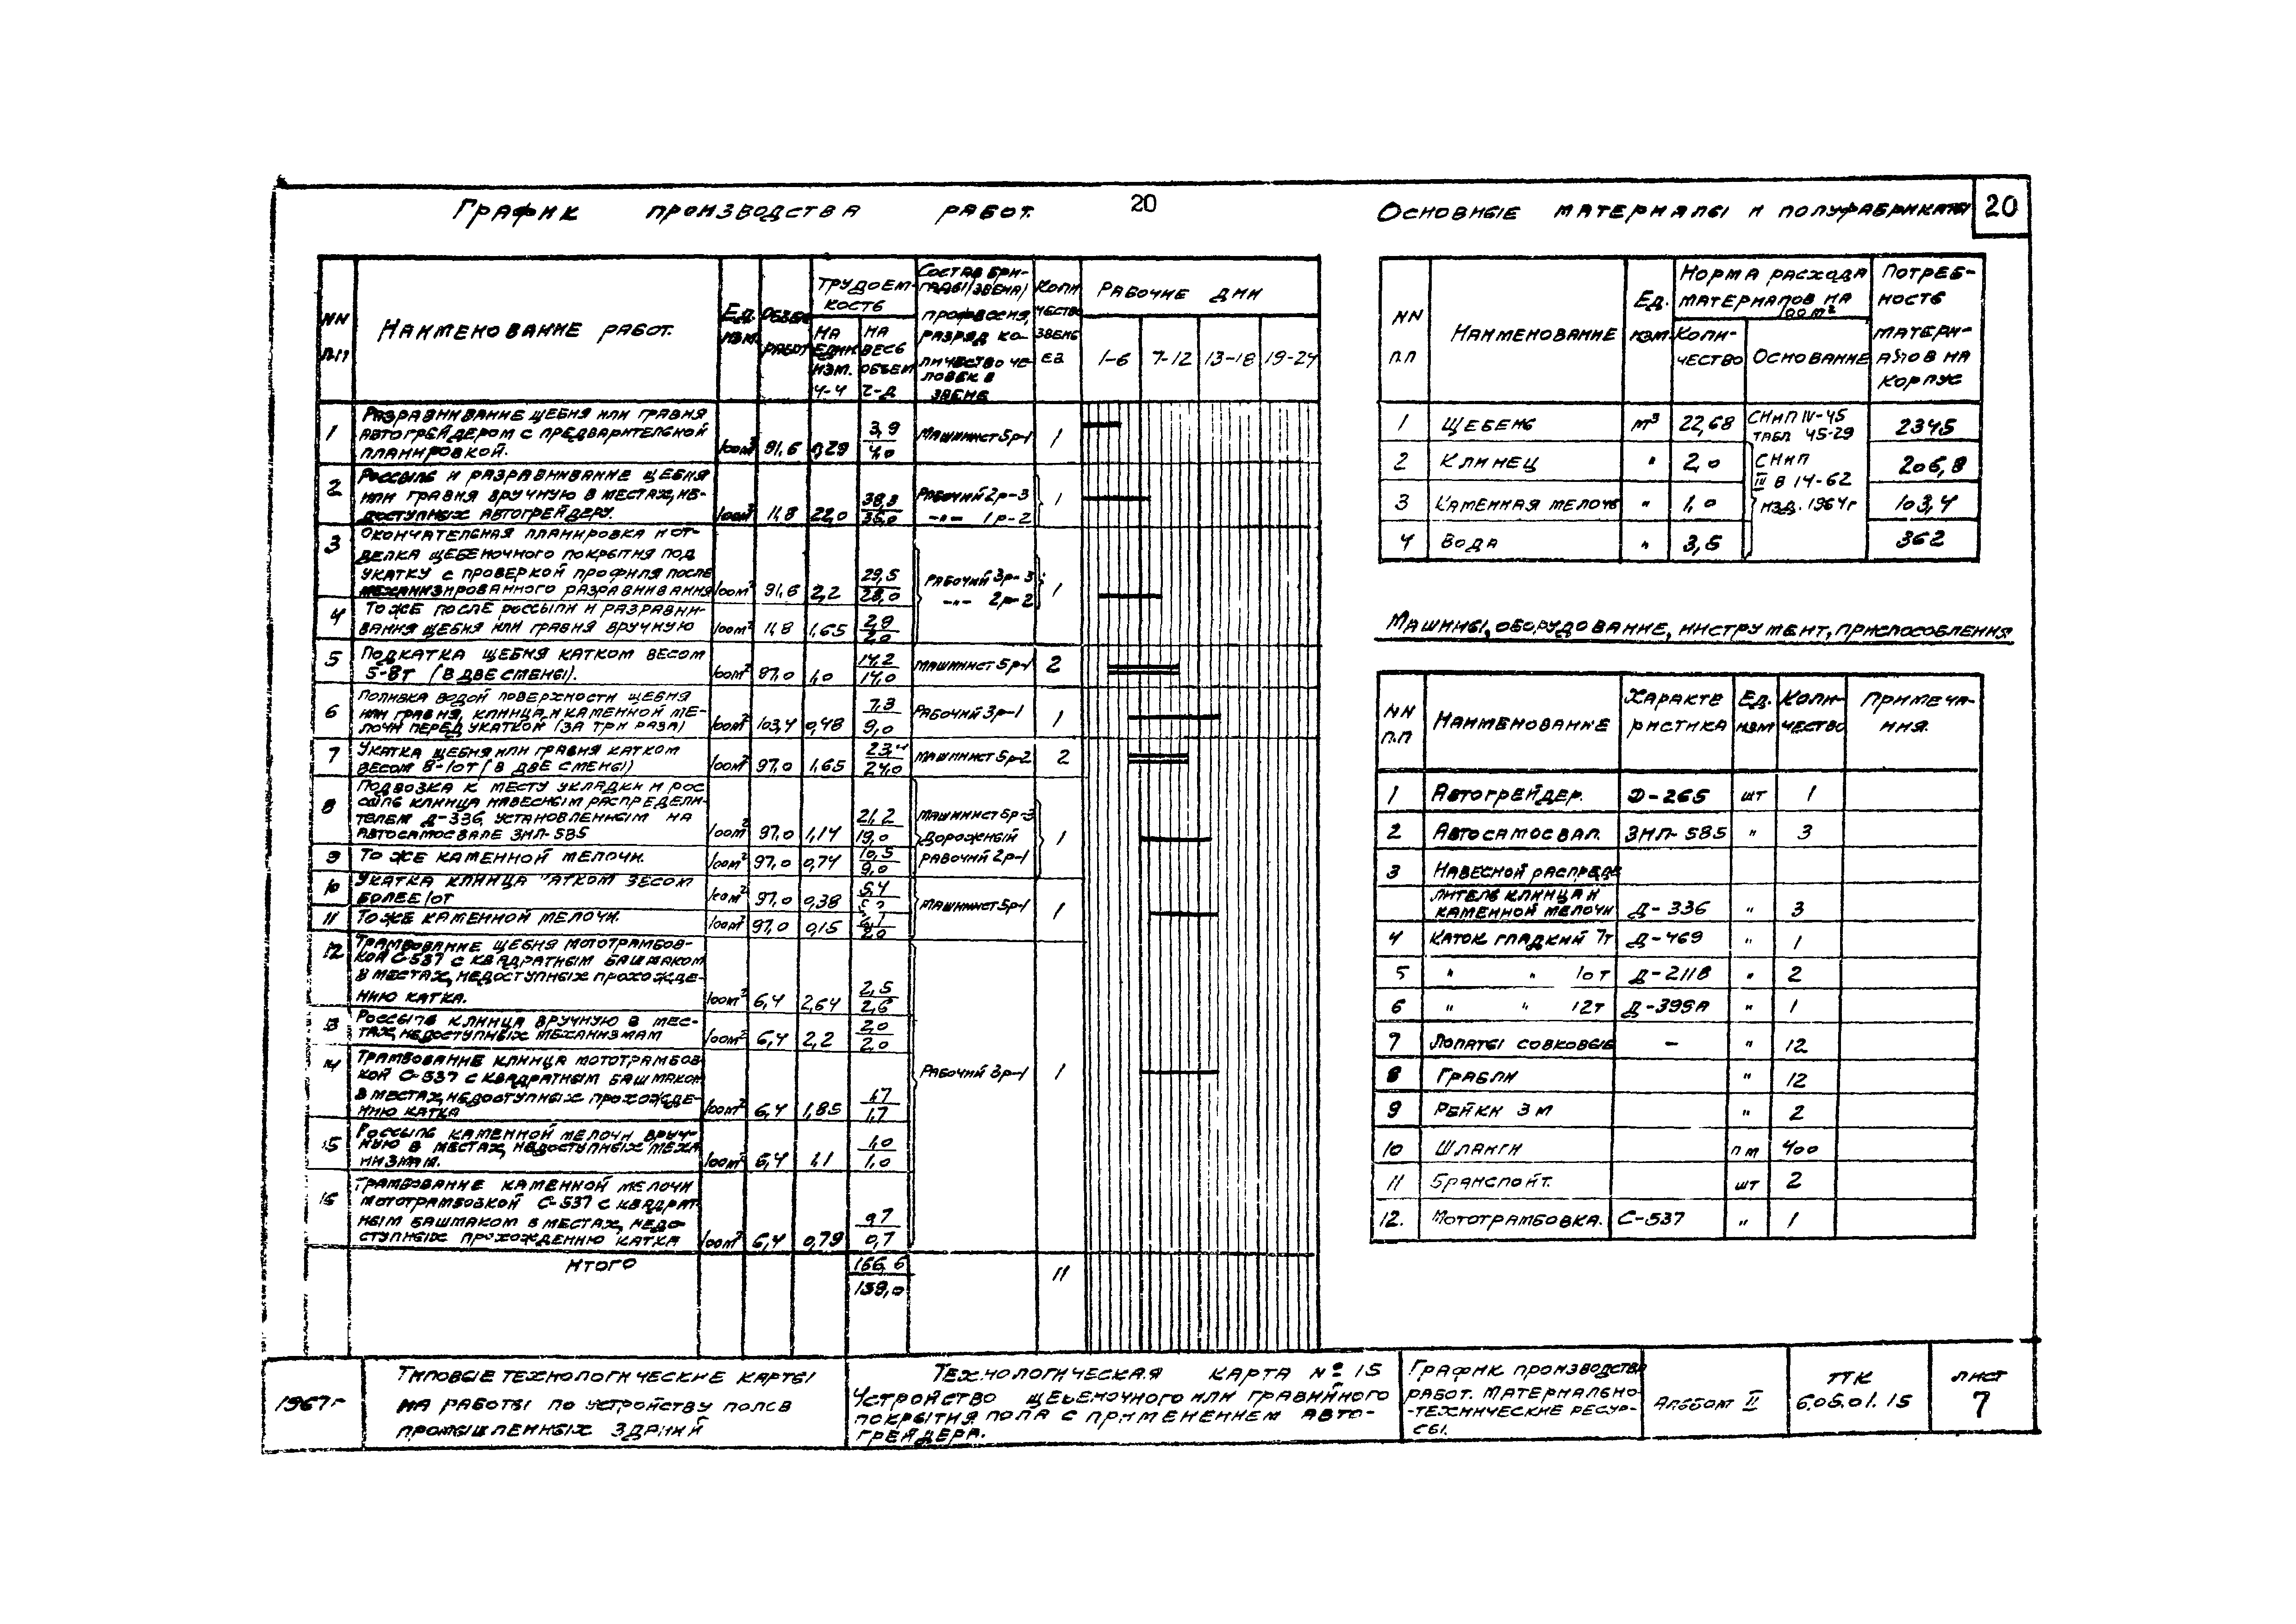 20
20
График производства работ.
NN п.п
Наименование работ.
Ед. изм.
Объем работ
Трудоемкость
на един. изм. ч-ч
на весь объем ч-д
Состав бригады (звена) профессия, разряд количество человек в звене
Количество звеньев
Рабочие дни
1-6 7-12 13-18 19-24
1 Разравнивание щебня или гравия
автогрейдером с предварительной
планировкой. 100м² 91,6 0,29 3,9 4,0 Машинист 5р-1 1
2 Россыпь и разравнивание щебня
или гравия вручную в местах, не-
доступных автогрейдеру. 100м² 11,8 22,0 38,8 36,0 Рабочий 2р-3 1
-"- 1р-2
3 Окончательная планировка и от-
делка щебеночного покрытия под
укатку с проверкой профиля после
механизированного разравнивания 100м² 91,6 2,2 29,5 28,0 Рабочий 3р-3 1
-"- 2р-2
4 То же после россыпи и разравни-
вания щебня или гравия вручную 100м² 11,8 1,65 2,9 2,0
5 Подкатка щебня катком весом
5-8т (в две смены). 100м² 97,0 1,0 14,2 14,0 Машинист 5р-1 2
6 Поливка водой поверхности щебня
или гравия, клинца и каменной ме-
лочи перед укаткой (за три раза) 100м² 103,4 0,48 7,3 9,0 Рабочий 3р-1 1
7 Укатка щебня или гравия катком
весом 8-10т (в две смены) 100м² 97,0 1,65 23,4 24,0 Машинист 5р-2 2
8 Подвозка к месту укладки и рос
сыпь клинца навесным распредели-
телем Д-336, установленным на
автосамосвале ЗИЛ-585 100м² 97,0 1,14 21,2 19,0 Машинист 5р-3
Дорожный 1
9 То же каменной мелочи. 100м² 97,0 0,74 10,5 9,0 рабочий 2р-1
10 Укатка клинца катком весом
более 10т 100м² 97,0 0,38 5,4 Машинист 5р-1 1
11 То же каменной мелочи. 100м² 97,0 0,15 2,1 2,0
12 Трамбование щебня мототрамбов-
кой С-537 с квадратным башмаком
в местах, недоступных прохожде-
нию катка. 100м² 6,4 2,64 2,5 2,6
13 Россыпь клинца вручную в мес-
тах, недоступных механизмам 100м² 6,4 2,2 2,0 2,0
14 Трамбование клинца мототрамбов
кой С-537 с квадратным башмаком
в местах, недоступных прохожде-
нию катка 100м² 6,4 1,85 1,7 1,7 Рабочий 3р-1 1
15 Россыпь каменной мелочи вруч-
ную в местах, недоступных меха
низмам. 100м² 6,4 1,1 1,0 1,0
16 Трамбование каменной мелочи
мототрамбовкой С-537 с квадрат
ным башмаком в местах, недо-
ступных прохождению катка 100м² 6,4 0,79 0,7 0,7
Итого 166,6 159,0 11
Основные материалы и полуфабрикаты
NN п.п
Наименование
Ед. изм.
Норма расхода материалов на 100м²
Количество
Основание
Потребность материалов на корпус
1 Щебень м³ 22,68 СНиП IV-45 табл 45-29 2345
2 Клинец " 2,0 СНиП III В 14-62 206,8
3 Каменная мелочь " 1,0 изд. 1964г 103,4
4 Вода " 3,5 362
Машины, оборудование, инструмент, приспособления
NN п.п
Наименование
Характеристика
Ед. изм
Количество
Примечания.
1 Автогрейдер. Д-265 шт 1
2 Автосамосвал. ЗИЛ-585 " 3
3 Навесной распреде
литель клинца и
каменной мелочи Д-336 " 3
4 Каток гладкий 7т Д-469 " 1
5 " " 10т Д-211В " 2
6 " " 12т Д-399А " 1
7 Лопаты совковые - " 12
8 Грабли " 12
9 Рейки 3м " 2
10 Шланги п м 400
11 Бранспойт. шт 2
12. Мототрамбовка. С-537 " 1
1967г
Типовые технологические карты
на работы по устройству полов
промышленных зданий
Технологическая карта № 15
Устройство щебеночного или гравийного
покрытия пола с применением авто-
грейдера.
График производства
работ. Материально-
-технические ресур-
сы.
Альбом II
ТТК
6.05.01.15
лист
7